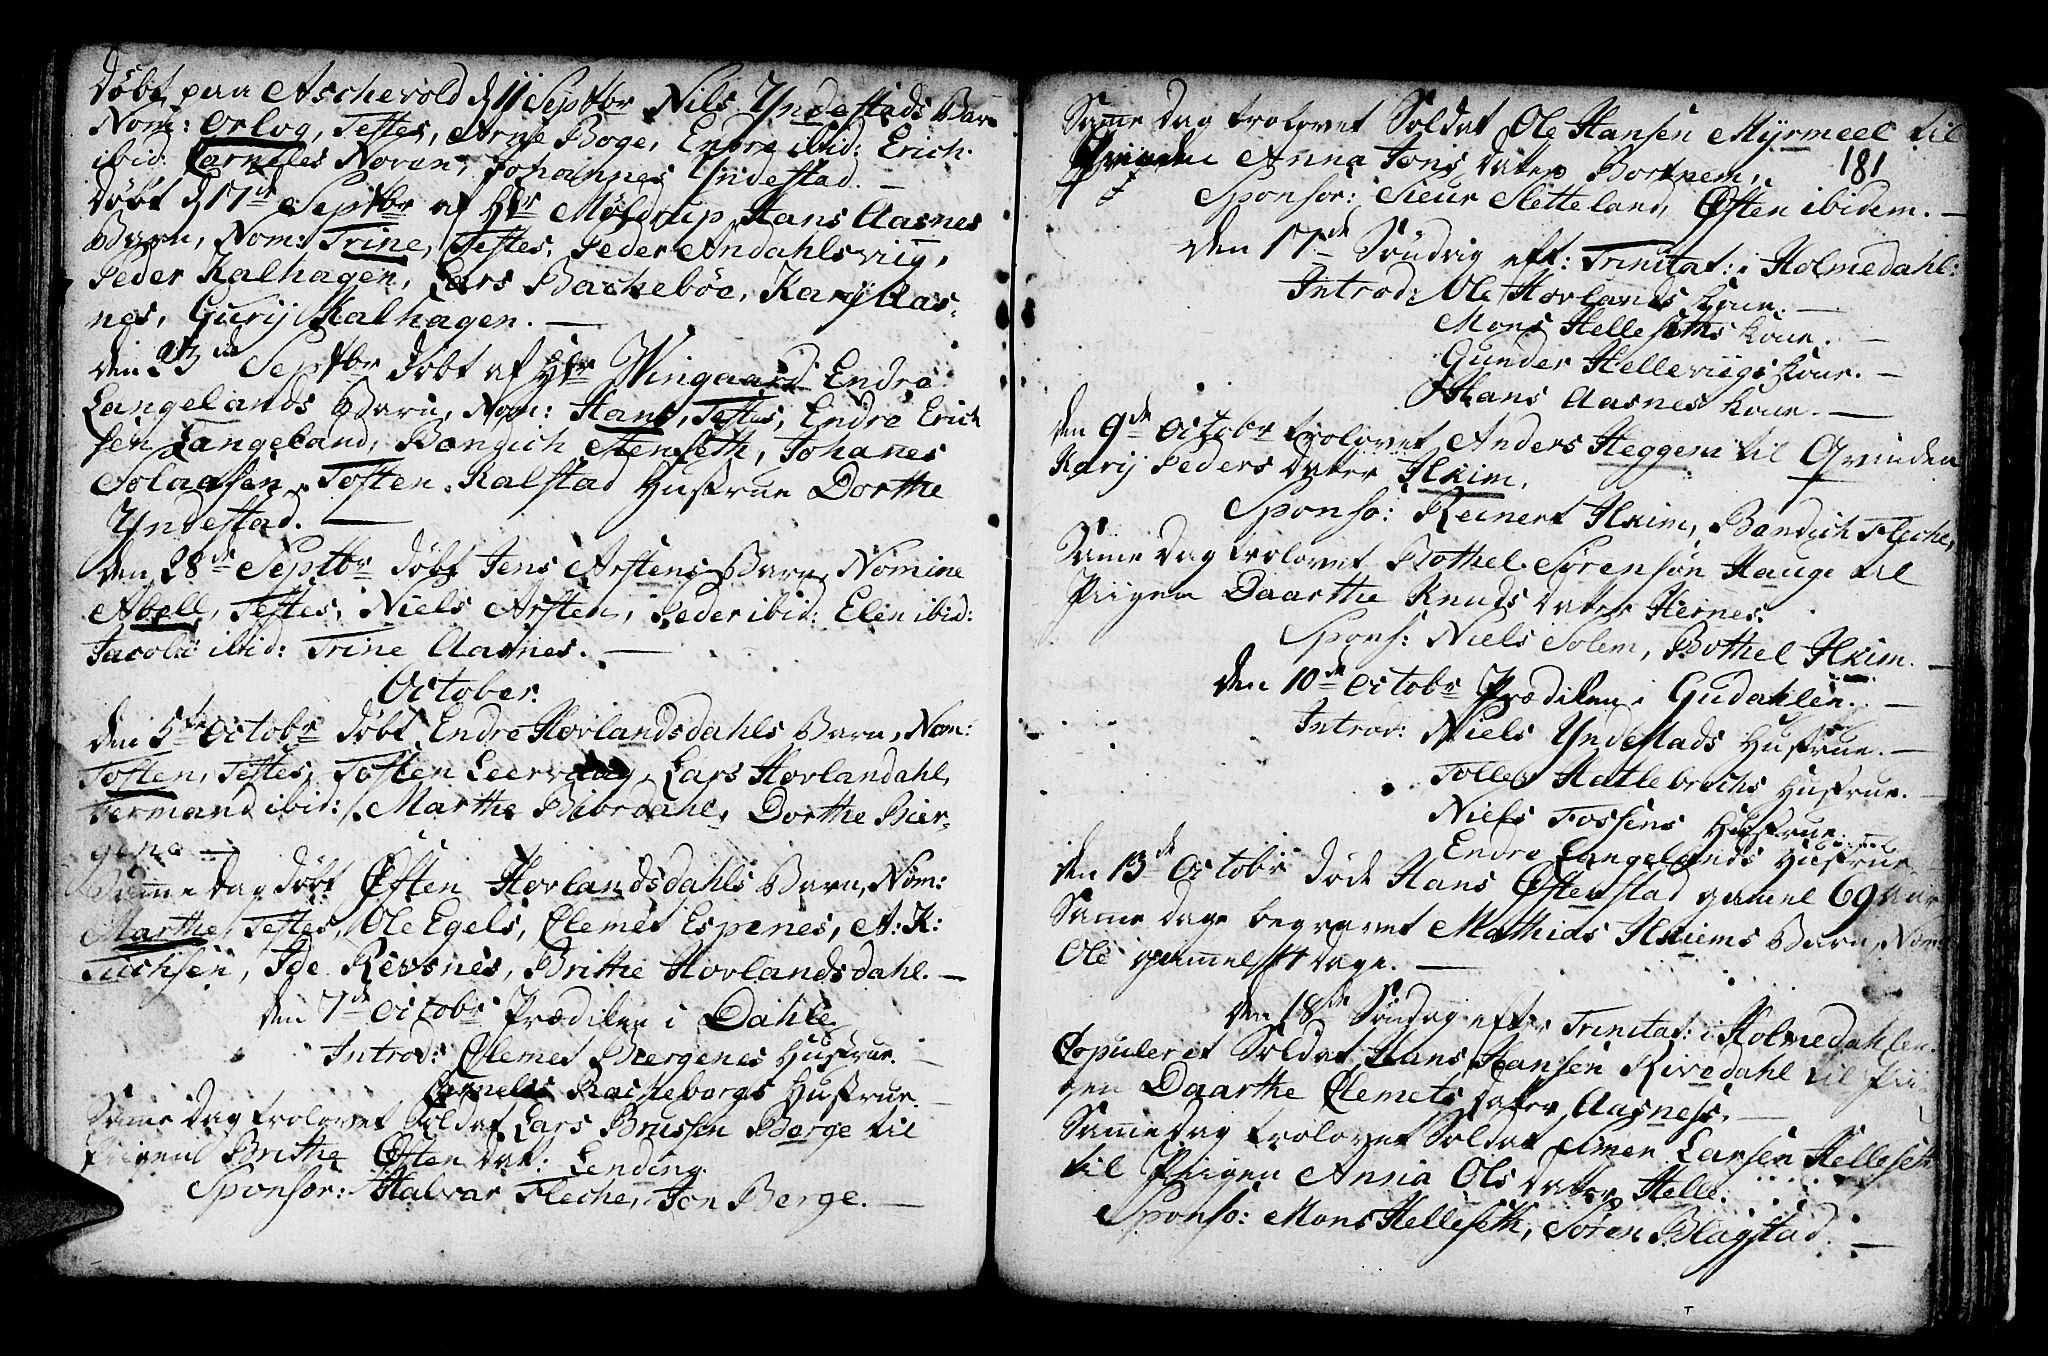 Döbt paa Aschevold d 11 Septbr Nils Yndestads Barn
Nom: Orlog, Testes, Arne Boge, Endre ibid: Erich
ibid: Carneles Noven, Johannes Yndestad. —
Döbt d 17de Septbr af Hr Möldrup Hans Aasnes
Barn, Nom: Trine, Testes, Peder Andahlsviig,
Peder Kalhagen, Lars Backeböe, Karij Aas-
nes, Gurij Kalhagen. —
den 23de Septbr döbt af Hr Wingaard Endre
Langelands Barn, Nom: Hans, Testes, Endre Erich
sen Langeland, Bendich Stenseth, Johanes
Solaasen, Tosten Kalstad Hustrue Dorthe
Yndestad. —
den 28de Septbr döbt Jens Arstens Barn, Nomine
Abell, Testes, Niels Arsten, Peder ibid: Elen ibid:
Jacob ibid: Trine Aasnes. —
October.
den 5te Octobr döbt Endre Hovlandsdahls Barn, Nom:
Tosten, Testes, Tosten Leervaag, Lars Hovlandahl,
Fermand ibid: Marthe Biordahl, Dorthe Bier-
gene —
Samme dag döbt Østen Hovlandsdahls Barn, Nom:
Marthe, Testes, Ole Egels, Clemet Espenes, A: K:
Tuchsen, Ide Revsnes, Brithe Hovlandsdahl. —
den 7de Octobr Prædiken i Dahle,
Introd: Clemet Biergenes Hustrue. —
Cornelis Rackebergs Hustrue. —
Same dag trolovet Soldat Lars Brussen Berge til
Piigen Brithe Østen Dat: Lending.
Sponsor: Halvar Fleche, Jon Berge. —
Same dag trolovet Soldat Ole Hansen Myrmeel til
Qvinden Anna Jons Dater Bortnem,
181
Sponsor: Sieur Sletteland, Østen ibidem. —
den 17de Söndag eft: Trinitat: i Holmedahl:
Introd: Ole Hovlands Kone. —
Mons Helleseths Kone. —
Gunder Helleviigs Kone. —
Hans Aasnes Kone. —
den 9de Octobr trolovet Anders Heggem til Qvinden
Karij Peders Dater Hkim,
Sponso: Reinert Hkim, Bendich Fleche,
Same dag trolovet Bothel Sörensøn Hauge til
Piigen Daarthe Knuds Dater Hernes.
Spons: Niels Solem, Bothel Hkim. —
den 10de Octobr Prædiken i Gudahlen. —
Introd: Niels Yndestads Hustrue. —
Tolles Hatlebrechs Hustrue. —
Niels Fossens Hustrue. —
Endre Langelands Hustrue
den 13de Octobr döde Hans Østenstad gamel 69 aar
Same dage begravet Mathias Hkiems Barn, Nom:
Ole gammel 14 dage. —
den 18de Söndag efter Trinitat: i Holmedahlen.
Copuleret Soldat Hans Hansen Rivedahl til Pii-
gen Daarthe Clemets Dater Aasness. —
Samme dag trolovet Soldat Simen Larsen Helleseth
til Piigen Anna Ols Dater Helle.
Sponso: Mons Helleseth, Sören Blagstad. —